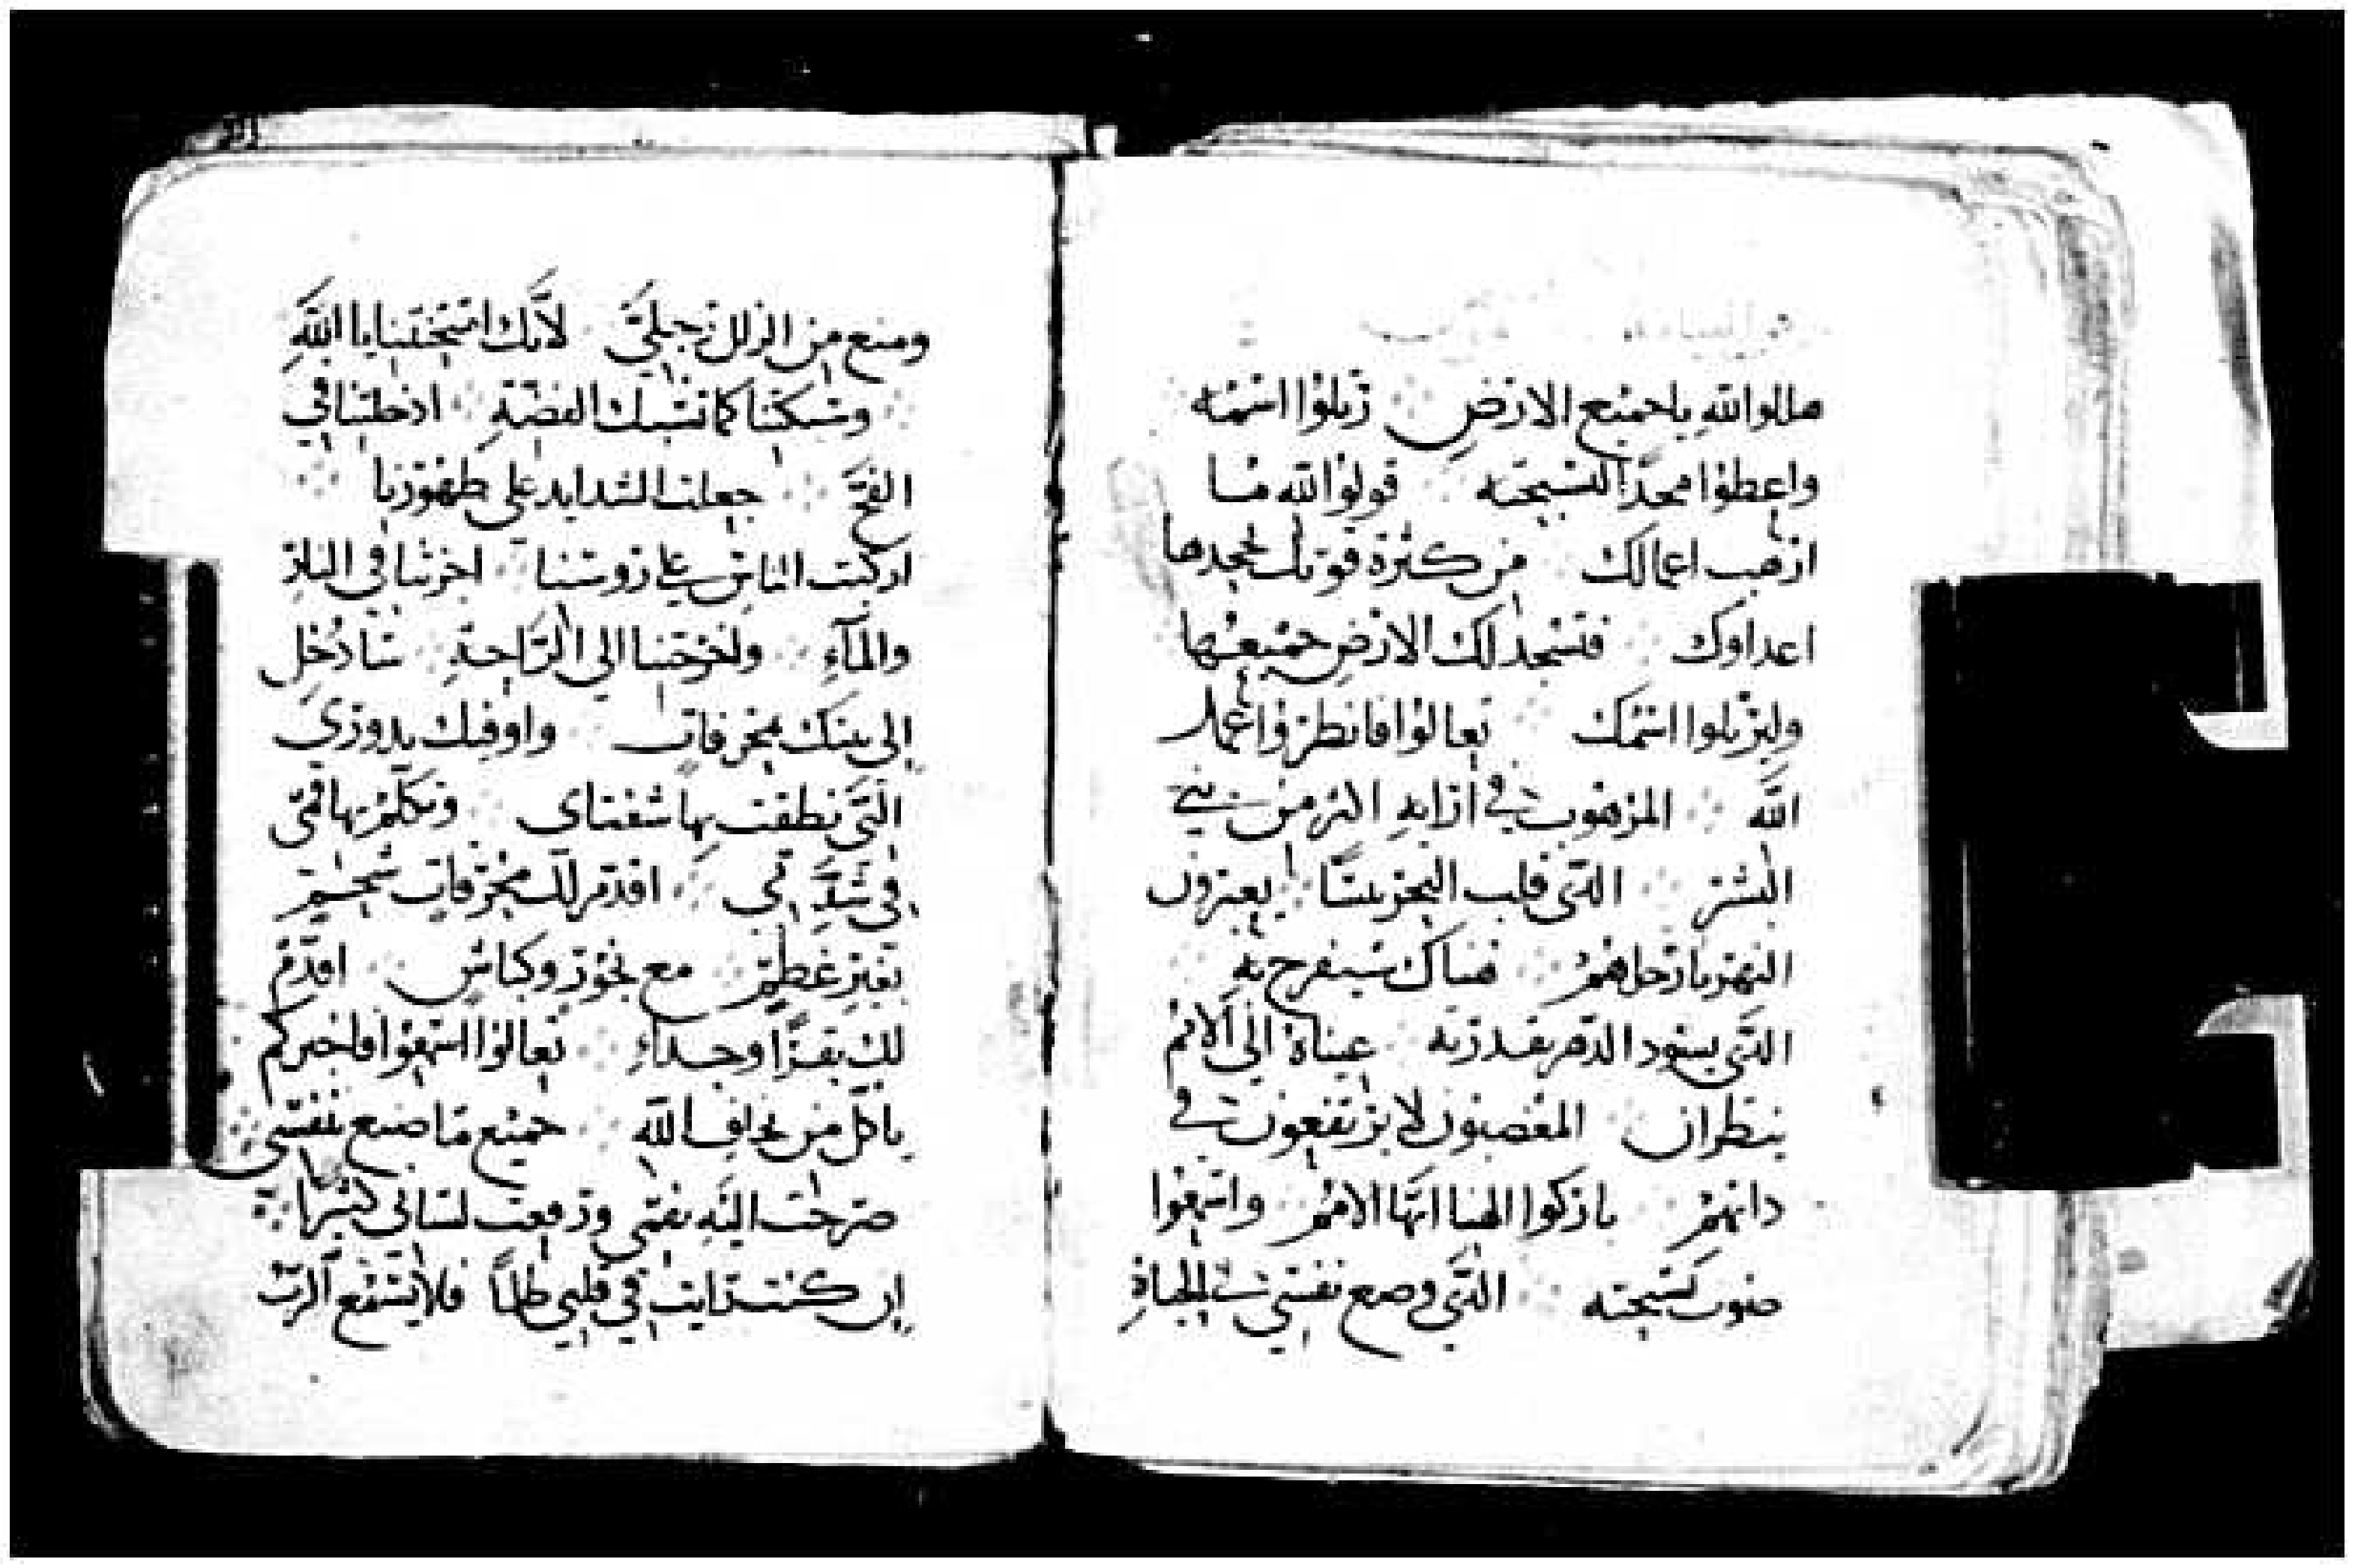 هللوا لله يا جميع الارض زتلوا اسمه
واعطوا مجدًا لتسبحته قولوا لله ما
ارهب اعمالك من كثرة قوتك تجحدها
اعداوك فتسجد لك الارض جميعها
وليرتلوا اسمك تعالوا فانظروا اعمال
الله المرهوب في ارايه اكثر من بني
البشر الذي قلب البحر يبسًا يعبرون
النهر بارجلهم هناك سيفرح به
الذي يسود الدهر بقدرته عيناه الى الامم
ينظران المغضبون لا يرتفعون في
ذاتهم باركوا الهنا ايها الامم واسمعوا
صوت تسبحته الذي وضع نفسي في الحياة
ومنع من الزلل رجليَّ لأنّك امتحنتنا يا الله
وسبكتنا كما تسبك الفضّة ادخلتنا في
الفخ جعلت الشدايد على ظهورنا
اركبت الناس على روسنا اجزتنا في النار
والمآء واخرجتنا الى الرّاحة سادخل
الى بيتك بمحرقات واوفيك نذوري
التي نطقت بها شفتاي وتكلم بها فمي
في شدّتي اقدم لك محرقات شحيم
بغير عظم مع بخور وكباش اقدّم
لك بقرًا وجداء تعالوا اسمعوا فاخبركم
يا كل من يخاف الله جميع ما صنع بنفسي
صرخت اليه بفمي ورفعت لساني كثيرًا
إن كنت رايت في قلبي ظلمًا فلا يسمع الرب